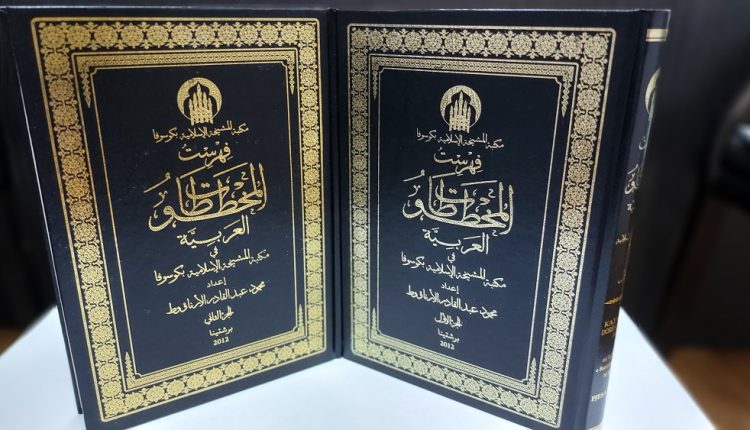 مكتبة المشيخة الإسلامية بكوسوفا
فهرست
المخطوطات
العربيَّة
في
مكتبة المشيخة الإسلامية بكوسوفا
إعداد
محمود عبد القادر الأرناؤوط
الجزء الأول
برشتينا
2012
مكتبة المشيخة الإسلامية بكوسوفا
فهرست
المخطوطات
العربيَّة
في
مكتبة المشيخة الإسلامية بكوسوفا
إعداد
محمود عبد القادر الأرناؤوط
الجزء الثاني
برشتينا
2012